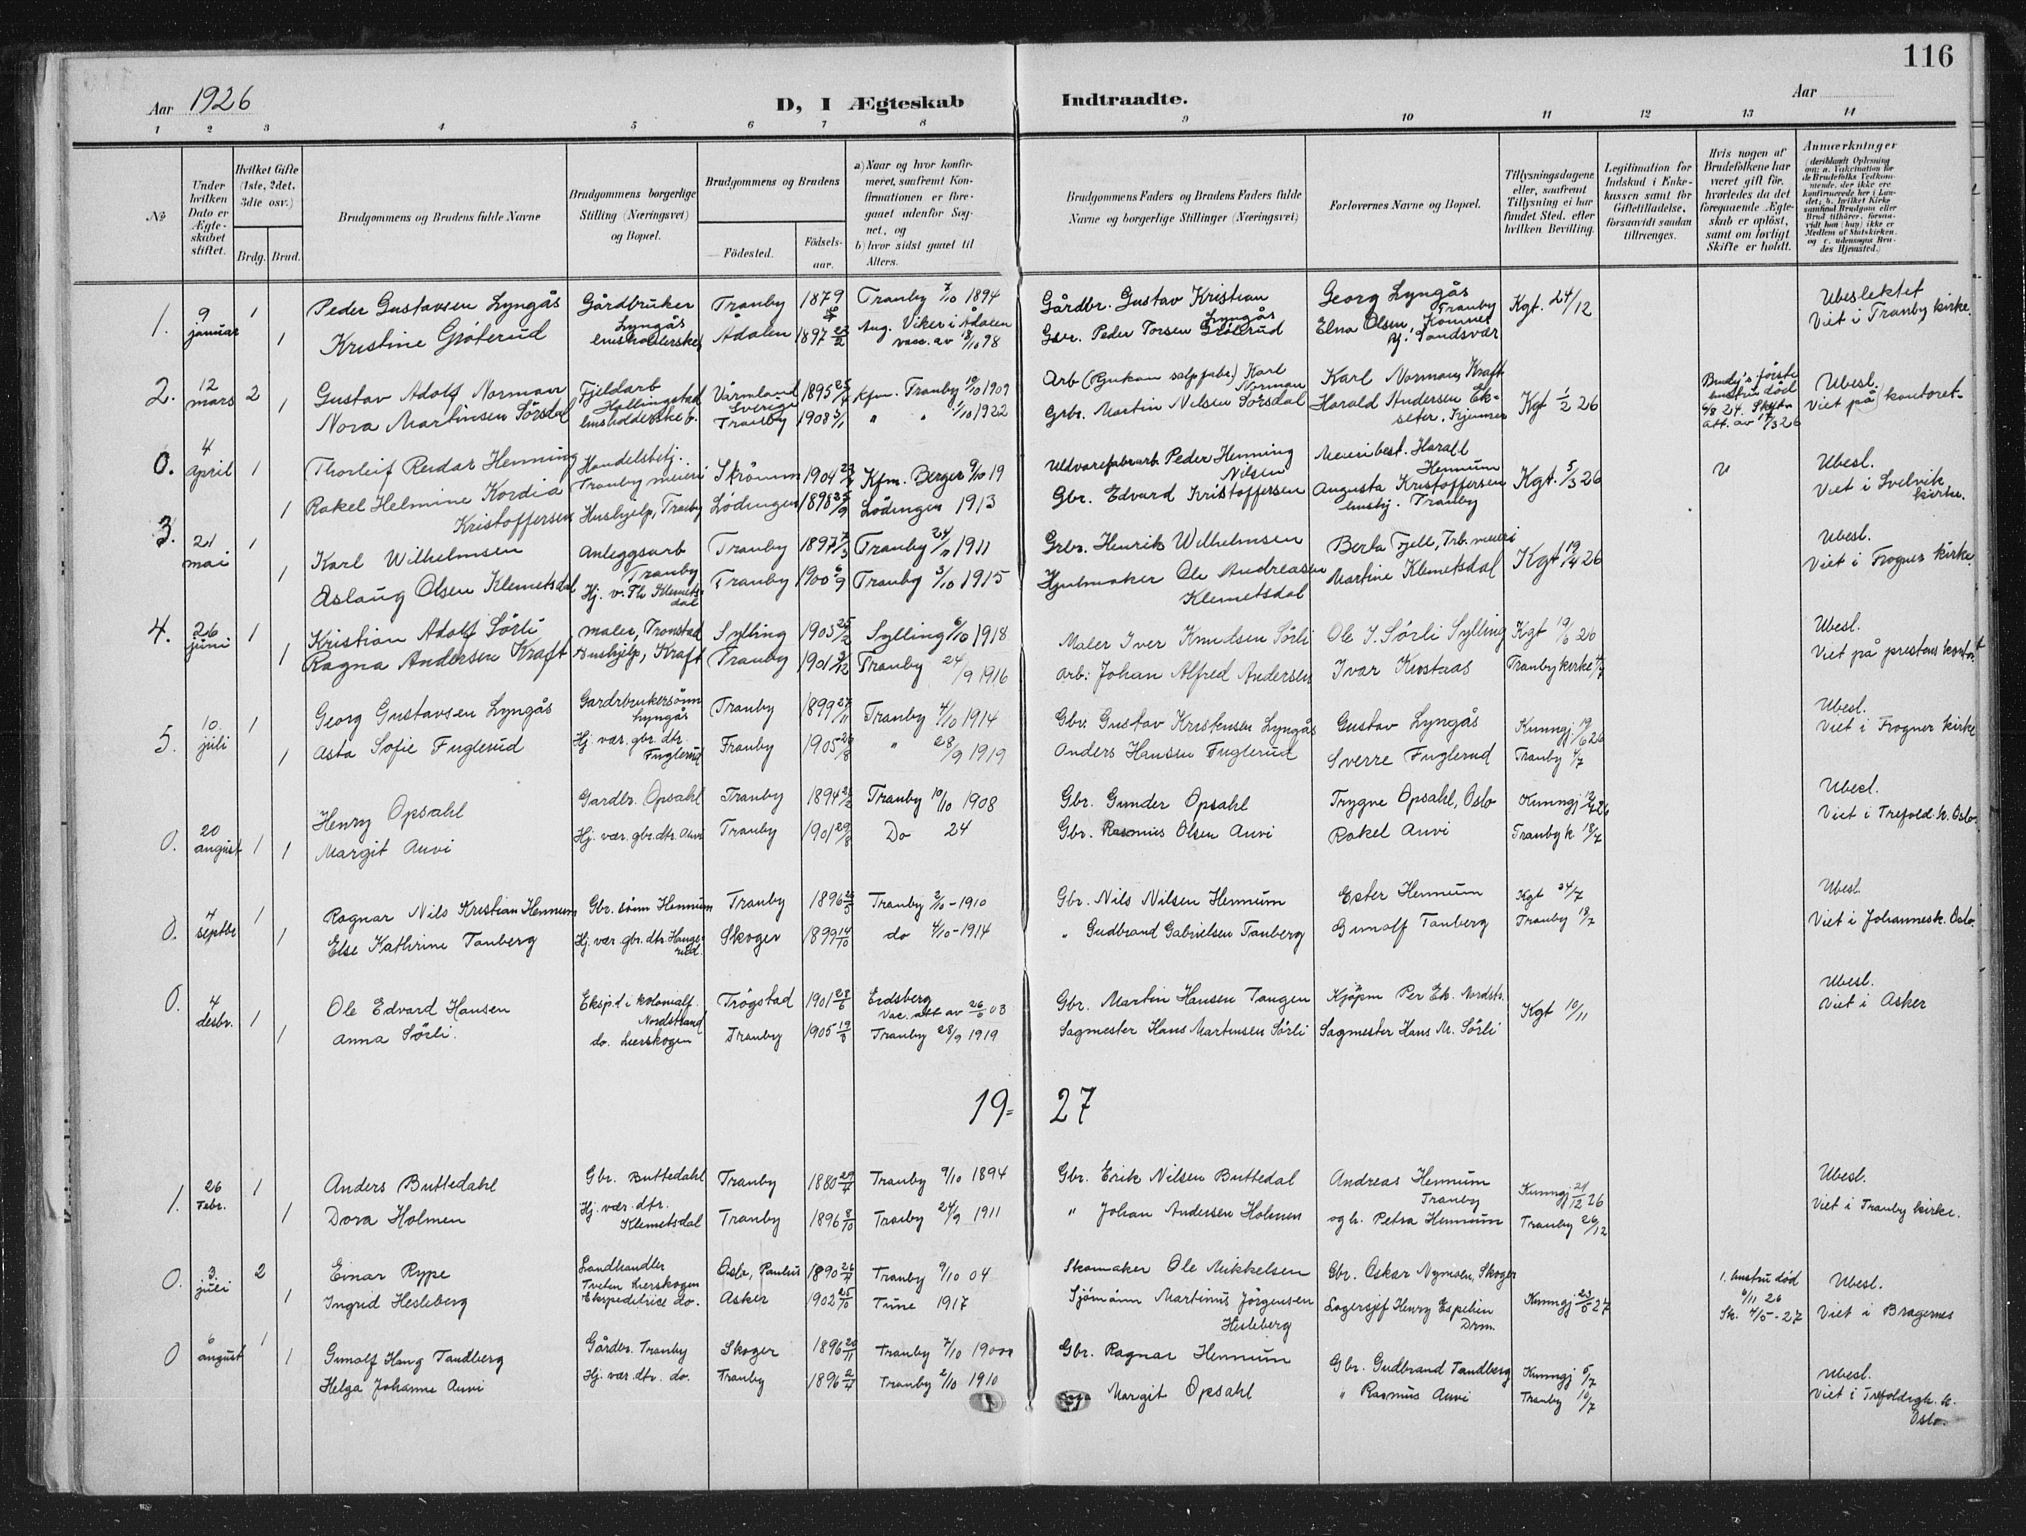 116
Aar 1926
D, I Ægteskab Indtraadte.
Aar
1 2 3 4 5 6 7 8 9 10 11 12 13 14
No
Under hvilken Dato er Ægteskabet stiftet.
Hvilket Gifte (1ste, 2det, 3die osv.)
Brdg. Brud.
Brudgommens og Brudens fulde Navne
Brudgommens borgerlige Stilling (Næringsvei) og Bopæl.
Brudgommens og Brudens
Fødested.
Fødsels-aar.
a) Naar og hvor konfirmeret, saafremt Konfirmationen er foregaaet udenfor Sognet, og
b) hvor sidst gaaet til Alters.
Brudgommens Faders og Brudens Faders fulde Navne og borgerlige Stillinger (Næringsvei)
Forlovernes Navne og Bopæl.
Tillysningsdagene eller, saafremt Tillysning ei har fundet Sted, efter hvilken Bevilling.
Legitimation for Indskud i Enkekassen samt for Giftetilladelse, forsaavidt saadan tiltrænges.
Hvis nogen af Brudefolkene har været gift før, hvorledes da det foregaaende Ægteskab er opløst, samt om lovligt Skifte er holdt.
Anmærkninger
1. 9 januar 1 Peder Gustavsen Lyngås Gårdbruker Lyngås Tranby 1879 Tranby 7/10 1894 Gårdbr. Gustav Kristian Lyngås Georg Lyngås Tranby Kgt. 24/12 Ubeslektet
1 Kristine Grøterud Ådalen 1897 Aug. Viker i Ådalen vacc. av 18/10 98 Gbr. Peder Torsen Grøterud Elna Olsen, Viet i Tranby kirke.
2. 12 mars 2 Gustav Adolf Norman Fjeldarb Hyllingstad Värmland Sverige 1895 Kfm. Tranby 10/10 1909 Arb (Rjukan salp.fabr.) Karl Norman Karl Norman, Kraft Kgt 1/2 26 Brudg's første hustru død Ubesl.
1 Nora Martinsen Sørsdal Tranby 1903 5/1 " " 1/10 1922 Grbr. Martin Nilsen Sørsdal Harald Andersen Viet på kontoret
0. 4 April 1 Thorleif Reidar Henning Handelsbetj. Tranby meieri 1904 Kfm. Berger 9/10 19 Uldvarefabrarb. Peder Henning Nilsen Meieribest. Harald Hennum Kgt. 5/3 26 Ubesl.
1 Rakel Helmine Kordia Kristoffersen Hushjelp, Tranby Lødingen 1898 25/9 Lødingen 1913 Gbr. Edvard Kristoffersen Augusta Kristoffersen Tranby Viet i Svelvik kirke.
3. 21 mai 1 Karl Wilhelmsen Anleggsarb Tranby Tranby 1897 7/3 Tranby 1911 Grbr. Henrik Wilhelmsen Berta Fjell, Trb. meieri Kgt 19/4 26 Ubesl.
1 Aslaug Olsen Klemetsdal Hj. v. Th Klemetsdal Tranby 1900 6/9 Tranby 3/10 1915 Hjulmaker Ole Andreasen Klemetsdal Martine Klemetsdal Viet i Frogner kirke.
4. 26 juni 1 Kristian Adolf Sörli maler, Tronstad Sylling 1903 25/2 Sylling 6/10 1918 Maler Iver Knudsen Sörli Ole I. Sörli Sylling Kgt 19/6 26 Ubesl.
1 Ragna Andersen Kraft Hushjelp, Kraft Tranby 1901 3/12 Tranby 24/9 1916 Arb: Johan Alfred Andersen Ivar Tranby kirke 4/7 Viet på prestens kontor
5. 10 juli 1 Georg Gustavsen Lyngås Gårdbrukersönn Lyngås Tranby 1899 27/11 Tranby 4/10 1914 Gbr. Gustav Kristensen Lyngås Gustav Lyngås Kunngj. 19/6 26 Ubesl.
1 Asta Sofie Fuglerud Hj. vær. gbr. dtr. Fuglerud Tranby 1905 " 28/9 1919 Anders Hansen Fuglerud Sverre Fuglerud Tranby 4/7 Viet i Frogner kirke
0. 20 august 1 Henry Opsahl Gardbr. Opsahl Tranby 1894 Tranby 10/10 1908 Gbr. Gunder Opsahl Trygve Opsahl, Oslo Kunngj Ubesl.
1 Margit Auvi Hj. vær. gbr. dtr. Auvi Tranby 1901 29/8 Do 24 Gbr. Rasmus Olsen Auvi Rakel Auvi Tranby k 18/7 Viet i Trefold. k. Oslo.
0. 4 septbr 1 Ragnar Nils Kristian Hennum Gbr. sønn Hennum Tranby 1896 Tranby 2/10 - 1910 Gbr. Nils Nilsen Hennum Ester Hennum Kgt 24/7 Ubesl.
1 Else Kathrine Tanberg Hj. vær. gbr. dtr. Skoger 1899 14/10 do 4/10 - 1914 " Gudbrand Gabrielsen Tanberg Gunolf Tanberg Tranby 18/7 Viet i Johannesk. Oslo.
0. 4 desbr. 1 Ole Edvard Hansen Eksp. i kolonialf. Nordstrand Trögstad 1901 Eidsberg Vac. att av 26/6 03 Gbr. Martin Hansen Tangen Kjöpm Per Ek. Nordstr. Kgt 10/11 Ubesl.
1 Anna Sörli. do. Lierskogen Tranby 1905 Tranby 28/9 1919 Sagmester Hans Martinsen Sörli Sagmester Hans M. Sörli Viet i Asker
19 = 27
1. 26 Febr. 1 Anders Buttedahl Gbr. Buttedahl Tranby 1880 Tranby 9/10 1894 Gbr. Erik Nilsen Buttedal Andreas Hennum Tranby Kunngj 21/12 26 Ubesl.
1 Dora Holmen Hj. vær. dtr. Klemetsdal Tranby 1896 8/10 Tranby 24/9 1911 " Johan Andersen Holmen og h. Petra Hennum Tranby 26/12 Viet i Tranby kirke.
0. 3. juli 2 Einar Rype Landhandler Tveten Lierskogen Oslo, Paulus 1890 26/4 Tranby 9/10 04 Skomaker Ole Mikkelsen Gbr. Oskar Nymoen, Skoger 1. hustru död 6/11 26 Ubesl.
1 Ingrid Hesleberg Ekspeditrice do. Asker 1902 25/10 Tune 1917 Sjömann Martinus Jörgensen Hesleberg Lagersjef Henry Espelien Drm. Kunngj 23/5 27 Sk. 4/5 - 27 Viet i Bragernes
0 6 august 1 Gunolf Haug Tandberg Gårdbr. Tranby Skoger 1896 20/11 Tranby 7/10 Gbr. Ragnar Hennum Gbr. Gudbrand Tandberg Kunngj 5/7 Ubesl.
1 Helga Johanne Auvi Hj. vær. dtr. do. Tranby 1896 2/4 Tranby 2/10 1910 Margit Opsahl " Rasmus Auvi Tranby 10/7 Viet i Trefoldigh. k. Oslo.